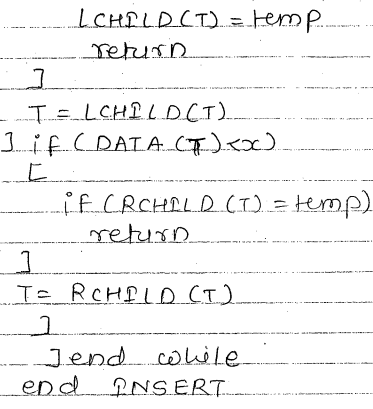 LCHILD(T) = temp
return
]
T = LCHILD(T)
] if (DATA (T) <x)
[
if (RCHILD (T) = temp)
return
]
T= RCHILD (T)
]
]end while
end INSERT